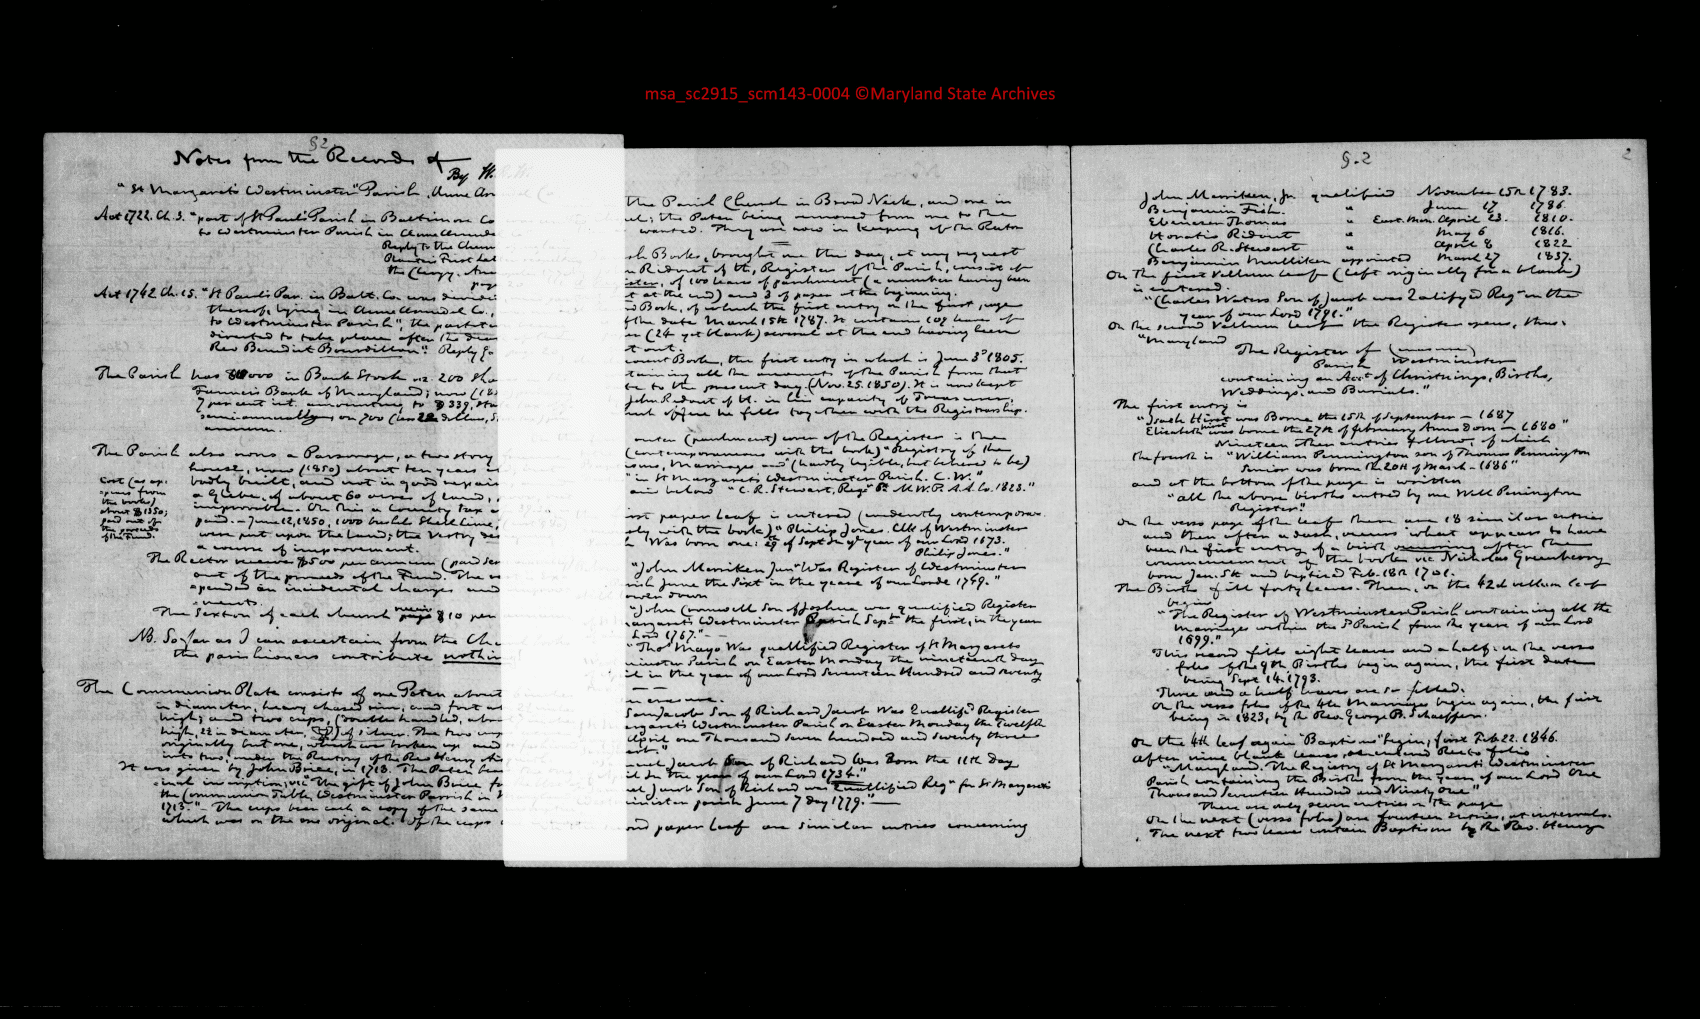 msa_sc2915_scm143-0004 ©Maryland State Archives
§2
Notes from the Records of
By H.
"St Margaret's Westminster" Parish, Anne
Act 1722. Ch. 3. "part of St Paul's Parish in Baltimore Co
to Westminster Parish in Anne Arunde
Reply to the
the Clergy,
Act 1742 Ch. 15. "St Paul's Par. in Balt. Co. was
thereof, lying in Anne Arundel Co.,
to Westminster Parish", the
directed to take place after the
Rev Benedict Bourdillon". Reply
The Parish has in Bank Stock viz. 200
Farmers Bank of Maryland; now (18
7 per cent int. amounting to $339,
semiannually on 700 (less dollars,
annum.
The Parish also owns a Parsonage, a two story
house, now (1850) about ten years
badly built, and not in good repair
a Glebe, of about 60 acres of land,
improvable. On this a County Tax
paid. — June 12, 1850, 1000 bushls Shell lime,
were put upon the land; the Vestry
a course of improvement.
Cost (as
from
the books)
about $1350;
paid out of
the proceeds
of the Fund.
The Rector receives $500 per annum (paid
out of the proceeds of the Fund. The
expended on incidental charges and
The Sexton of each church receives $10 per
NB. So far as I can ascertain from the
the parishioners contribute nothing
The Communion Plate consists of one Paten about
in diameter, heavy chased rim, and foot
high; and two cups, (double handled,
high, in diameter, ) of silver. The two
originally but one, which was broken up and
into two, under the Rectory of the Rev Henry
It was given by John Brice, in 1713. The Paten
inscription, viz "The gift of John Brice
the Communion Table, Westminster Parrish in
1713." — The cups bear each a copy of the same
which was on the one original. Of the cups
the Parish Church in Broad Neck, and one in
the Paten being removed from one to the
wanted. They are now in keeping of the Rector
Books, brought me this day, at my request
Ridout of H., Register of the Parish, consist of
of 100 leaves of parchment (a number having been
at the end) and 3 of paper at the beginning.
Book, of which the first entry on the first page
the date March 15th 1787. It contains 109 leaves of
(24 yet blank) several at the end having been
out.
Book, the first entry in which is June 3d 1805.
containing all the accounts of the Parish from that
to the present day (Nov. 25. 1850). It is now kept
John Ridout of H. in his capacity of Treasurer,
office he fills together with the Registrarship.
outer (parchment) cover of the Register is this
(contemporaneous with the book) "Registry of the
Marriages and" (hardly legible, but believed to be)
"in St Margaret's Westminster Parish. C. W."
below "C. R. Stewart, Regr M. W. P. A. A. Co. 1823."
first paper leaf is entered (evidently
with the book) "Philip Jones. Clk of Westminster
Was born one: 29 of Sept in ye year of our Lord 1673.
Philip Jones."
"John Merriken Junr Was Register of Westminster
Parish June the Sixt in the yeare of our Lorde 1749."
lower down
"John Cromwell Son of Joshua was qualified Register
Margarets Westminster Parish Sepr the first, in the year
Lord 1767." —
"Thos Mayo Was quallified Register of St Margarets
Westminster Parish on Easter Monday the nineteenth day
in the year of our Lord Seventeen Hundred and seventy
an erasure.
Saml Jacobs Son of Richard Jacob Was Quallified Register
Margarets Westminster Parish on Easter Monday the Twelfth
April one Thousand Seven hundred and seventy three
Jacob Son of Richard Was Born the 11th day
in the year of our Lord 1734."
Jacob Son of Richard was Quallified Regr for St Margarets
Westminster parish June 7 day 1779." —
second paper leaf are similar entries concerning
§.2
2
John Merriken, Jr. qualified November 15th 1783.
Benjamin Fish. " June 17 1786.
Ebenezer Thomas " East. Mon. April 23. 1810.
Horatio Ridout " May 6 1816.
Charles R. Stewart " April 8 1822
Benjamin Mulliken appointed March 27 1837.
On the first vellum leaf (left originally for a blank)
is entered.
"Charles Waters Son of Jacob was Qalifyed Regr in the
year of our Lord 1791."
On the second vellum leaf the Register opens, thus:
"Maryland
The Register of (erasure)
Parish Westminster
containing an Acct of Christnings, Births,
Weddings, and Burials."
The first entry is
"Isaeh Hirst was Borne the 15th of September — 1687
Elizabeth Hirst was borne the 27th of february Anno Dom — 1680"
Nineteen other entries follow, of which
the fourth is "William Pennington son of Thomas Pennington
Senior was born the 20th of March — 1686"
and at the bottom of the page is written
"all the above births entred by me Will Penington
Register."
On the verso page of the leaf there are 18 similar entries
and then after a dash, occurs what appears to have
been the first entry of a birth occurring after the
commencement of the book viz. Nicholas Greenberry
born Jan. 5th and baptized Feb. 18th 1701.
The Births fill forty leaves. Then, on the 42d vellum leaf
begins
"The Register of Westminster Parish containing all the
marriages within the sd Parish from the yeare of our Lord
1699."
This record fills eight leaves and a half: on the verso
folio of the 9th Births begin again, the first date
being Sept 14. 1793.
Three and a half leaves are so filled.
On the verso folio of the 4th Marriages begin again, the first
being in 1823, by the Rev. George B. Schaeffer.
On the 4th leaf again "Baptisms" begin, first Feb. 22. 1846.
After nine blank leaves, occurs on a Recto folio
"Maryland. The Registry of St Margarets Westminster
Parish containing the Births from the year of our Lord One
Thousand Seventeen Hundred and Ninety One"
There are only seven entries on the page
On the next (verso folio) are fourteen entries, at intervals.
The next two leaves contain Baptisms by the Rev. Henry